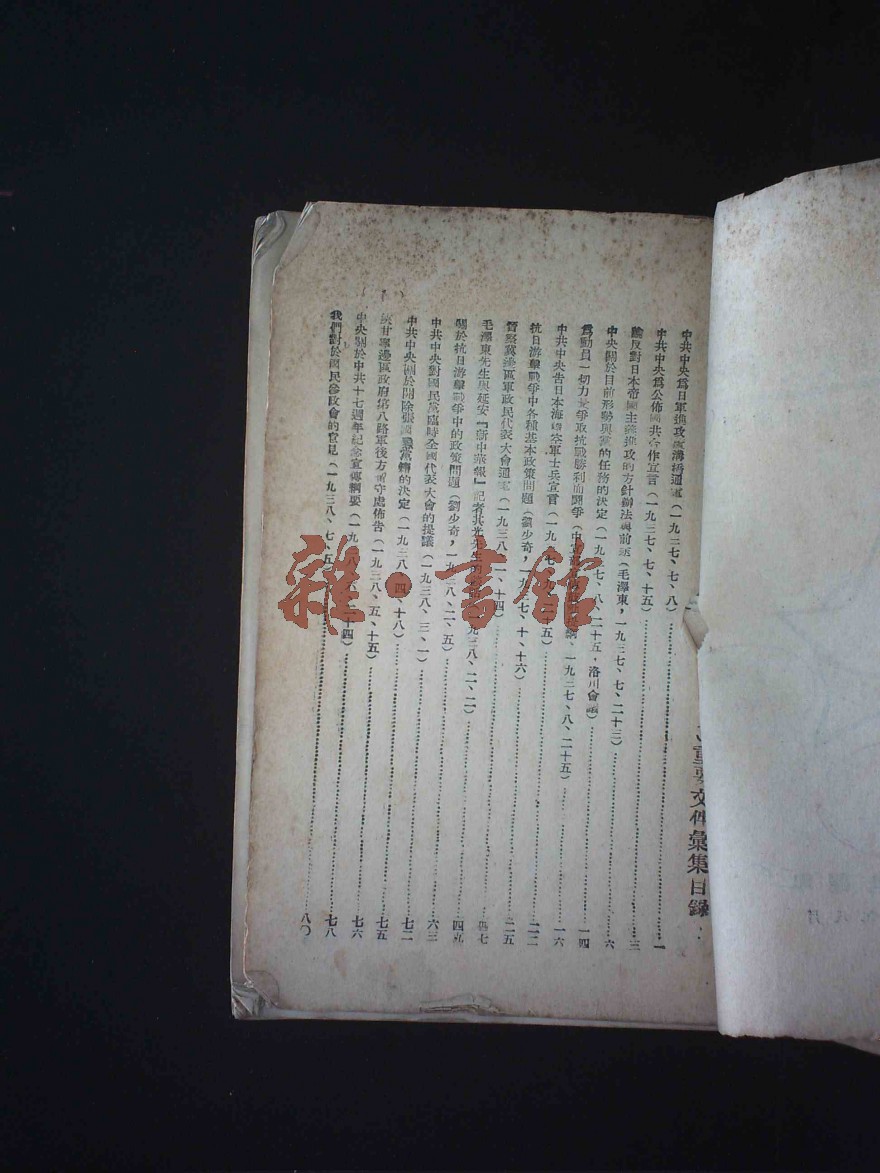 重要文件彙集目錄
中共中央為日軍進攻盧溝橋通電（一九三七、七、八）……一
中共中央爲公佈國共合作宣言（一九三七、七、十五）……三
論反對日本帝國主義進攻的方針辦法與前途（毛澤東，一九三七、七、二十三）……六
中央關於目前形勢與黨的任務的決定（一九三七、八、二十五，洛川會議）……一四
爲動員一切力量爭取抗戰勝利而鬭爭（中、一九三七、八、二十五）……一六
中共中央告日本海陸空軍士兵宣言（一九三七、二十五）……二二
抗日游擊戰爭中各種基本政策問題（劉少奇，一九三七、十、十六）……二五
晉察冀邊區軍政民代表大會通電（一九三八、十四）……四七
毛澤東先生與延安『新中華報』記者其光先生的九三八、二、二）……四九
關於抗日游擊戰爭中的政策問題（劉少奇，一九三八、二、五）……六三
中共中央對國民黨臨時全國代表大會的提議（一九三八、三、一）……七二
中共中央關於開除張國燾黨籍的決定（一九三八、四、十八）……七五
陝甘寧邊區政府第八路軍後方留守處佈告（一九三八、五、十五）……七六
中央關於中共十七週年紀念宣傳綱要（一九三八、六、二十四）……七八
我們對於國民參政會的意見（一九三八、七、五）……八〇
雜·書館
八月